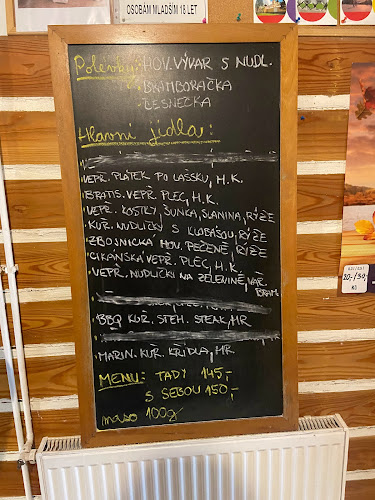 OSOBÁM MLADŠÍM 18 LET
Polévky: HOV. VÝVAR S NUDL.
BRAMBORAČKA
ČESNEČKA
Hlavní jídla:
VEPŘ. PLÁTEK PO LAŠSKU, H.K.
BRATIS. VEPŘ. PLEC, H.K.
VEPŘ. KOSTKY, ŠUNKA, SLANINA, RÝŽE
KUŘ. NUDLIČKY S KLOBÁSOU, RÝŽE
ZBOJNICKÁ HOV. PEČENĚ, RÝŽE
CIKÁNSKÁ VEPŘ. PLEC, H.K.
VEPŘ. NUDLIČKY NA ZELENINĚ, VAŘ.
BRAM.
BBQ KUŘ. STEH. STEAK, HR
MARIN. KUŘ. KŘÍDLA, HR.
MENU: TADY 145,-
S SEBOU 150,-
maso 100g